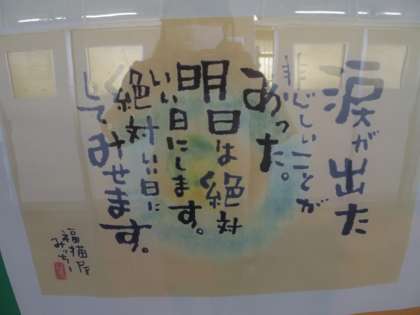 涙が出た
悲しいことが
あった。
明日は絶対
いい日にします。
絶対いい日に
してみせます。
福猫屋